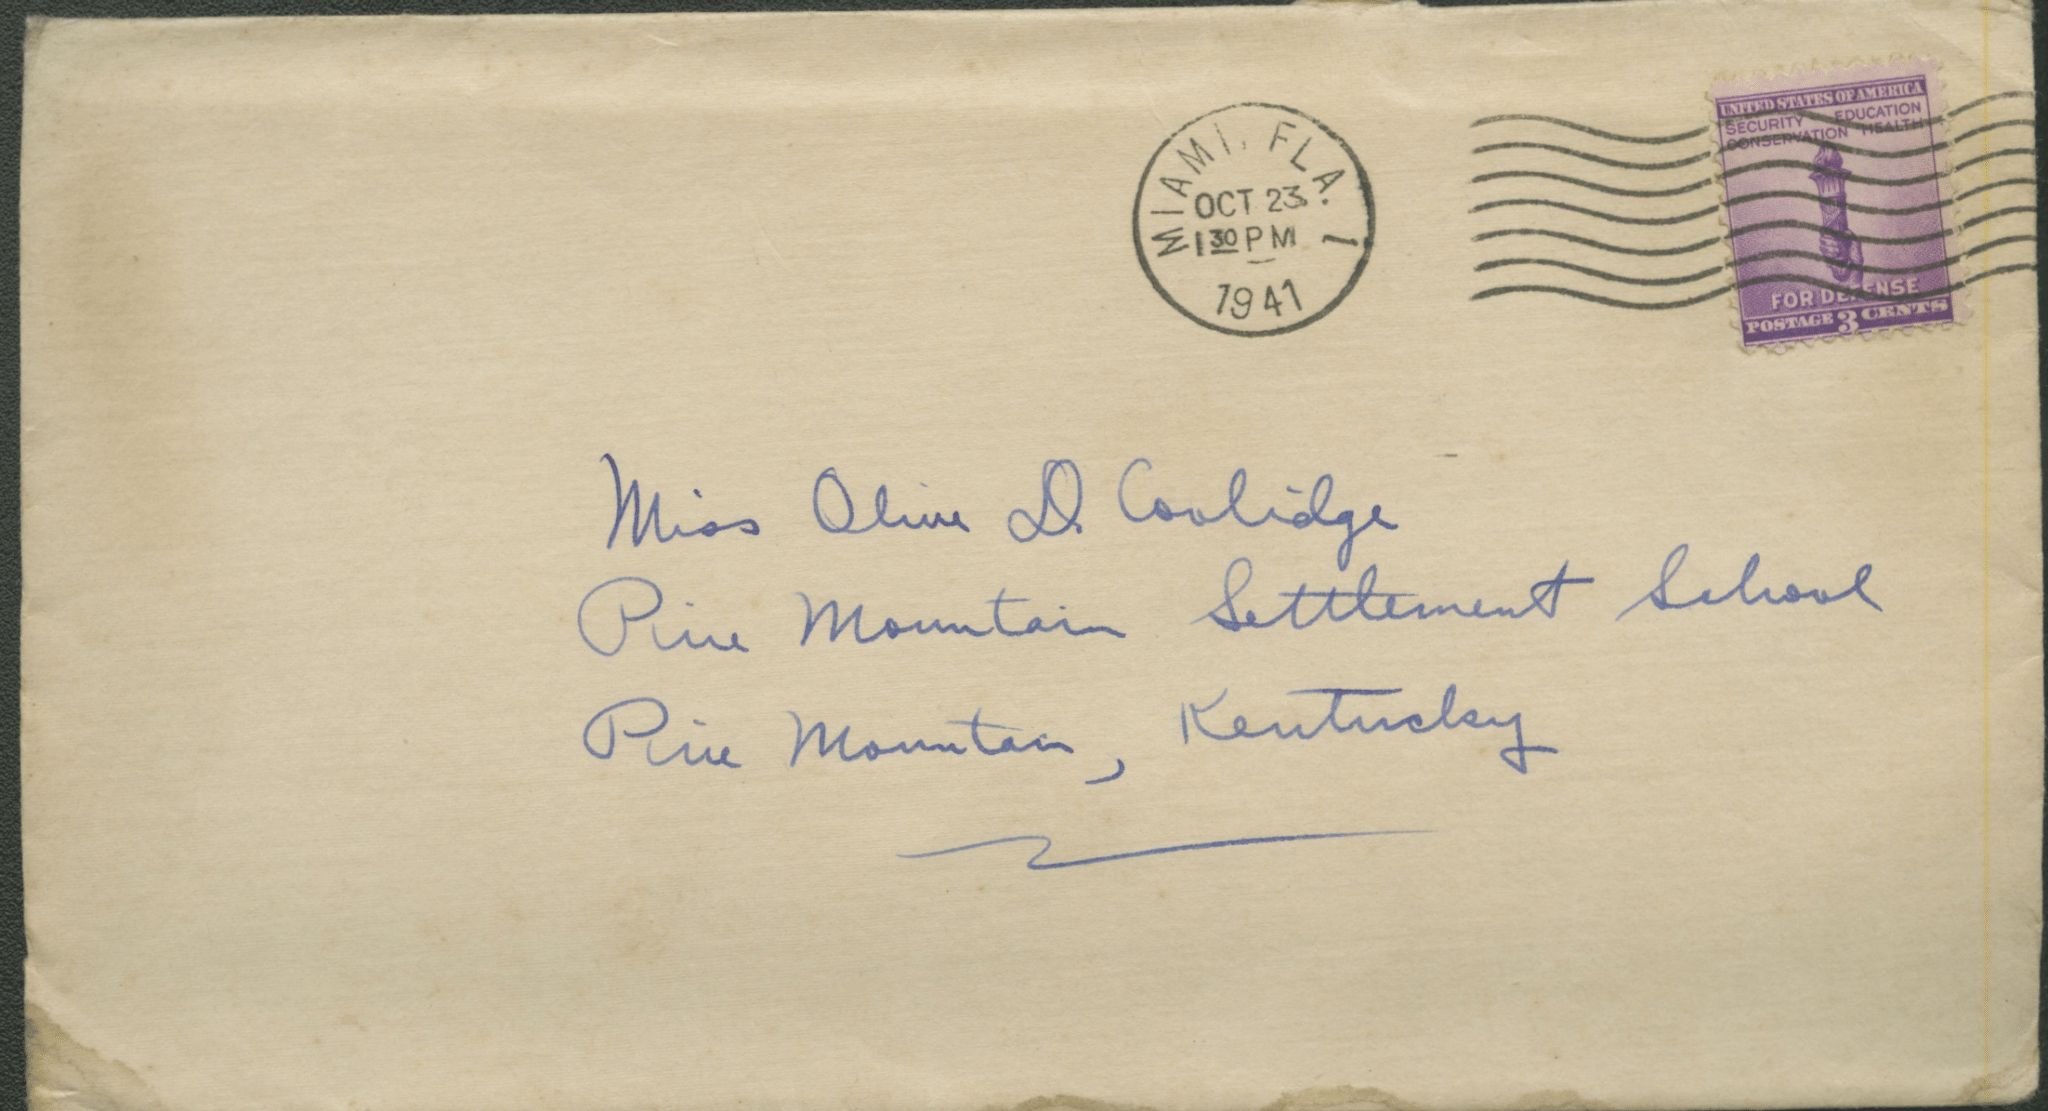 MIAMI, FLA. 1
OCT 23
1 30 PM
1941
UNITED STATES OF AMERICA
SECURITY EDUCATION
CONSERVATION HEALTH
FOR DEFENSE
POSTAGE 3 CENTS
Miss Olive D. Coolidge
Pine Mountain Settlement School
Pine Mountain, Kentucky